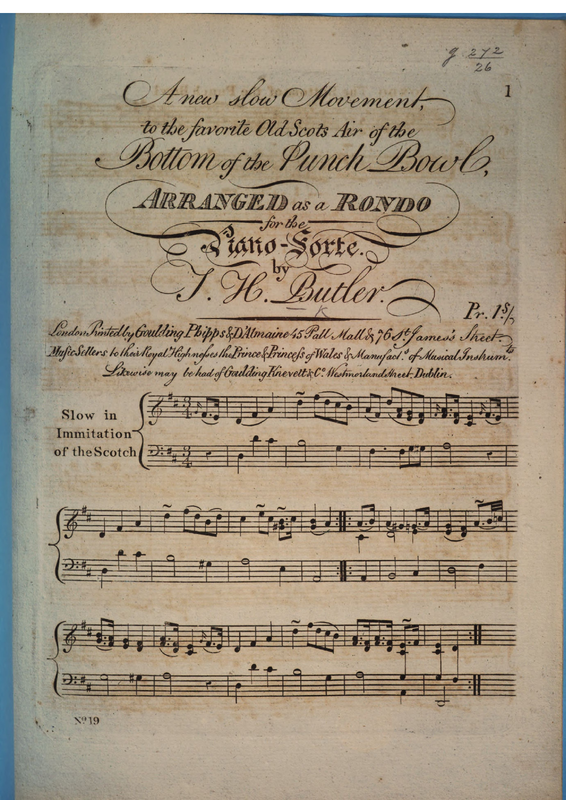 g. 272
26
1
A new slow Movement,
to the favorite Old Scots Air of the
Bottom of the Punch Bowl,
ARRANGED as a RONDO
for the
Piano-Forte.
by
T. H. Butler.
Pr. 1s/
London Printed by Goulding Phipps & D'Almaine 45 Pall Mall & 76 St. James's Street.
Music Sellers to their Royal Highnesses the Prince & Princess of Wales & Manufact.s of Musical Instrum.ts
Likewise may be had of Goulding Knevett & Co. Westmorland Street, Dublin.
Slow in
Immitation
of the Scotch
No 19